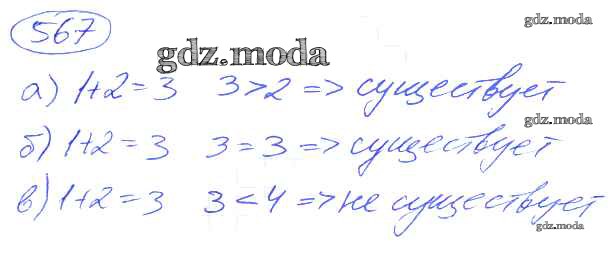 567
gdz.moda
gdz.moda
а) 1+2=3 3>2 => существует
gdz.moda
б) 1+2=3 3=3 => существует
в) 1+2=3 3<4 => не существует
gdz.moda